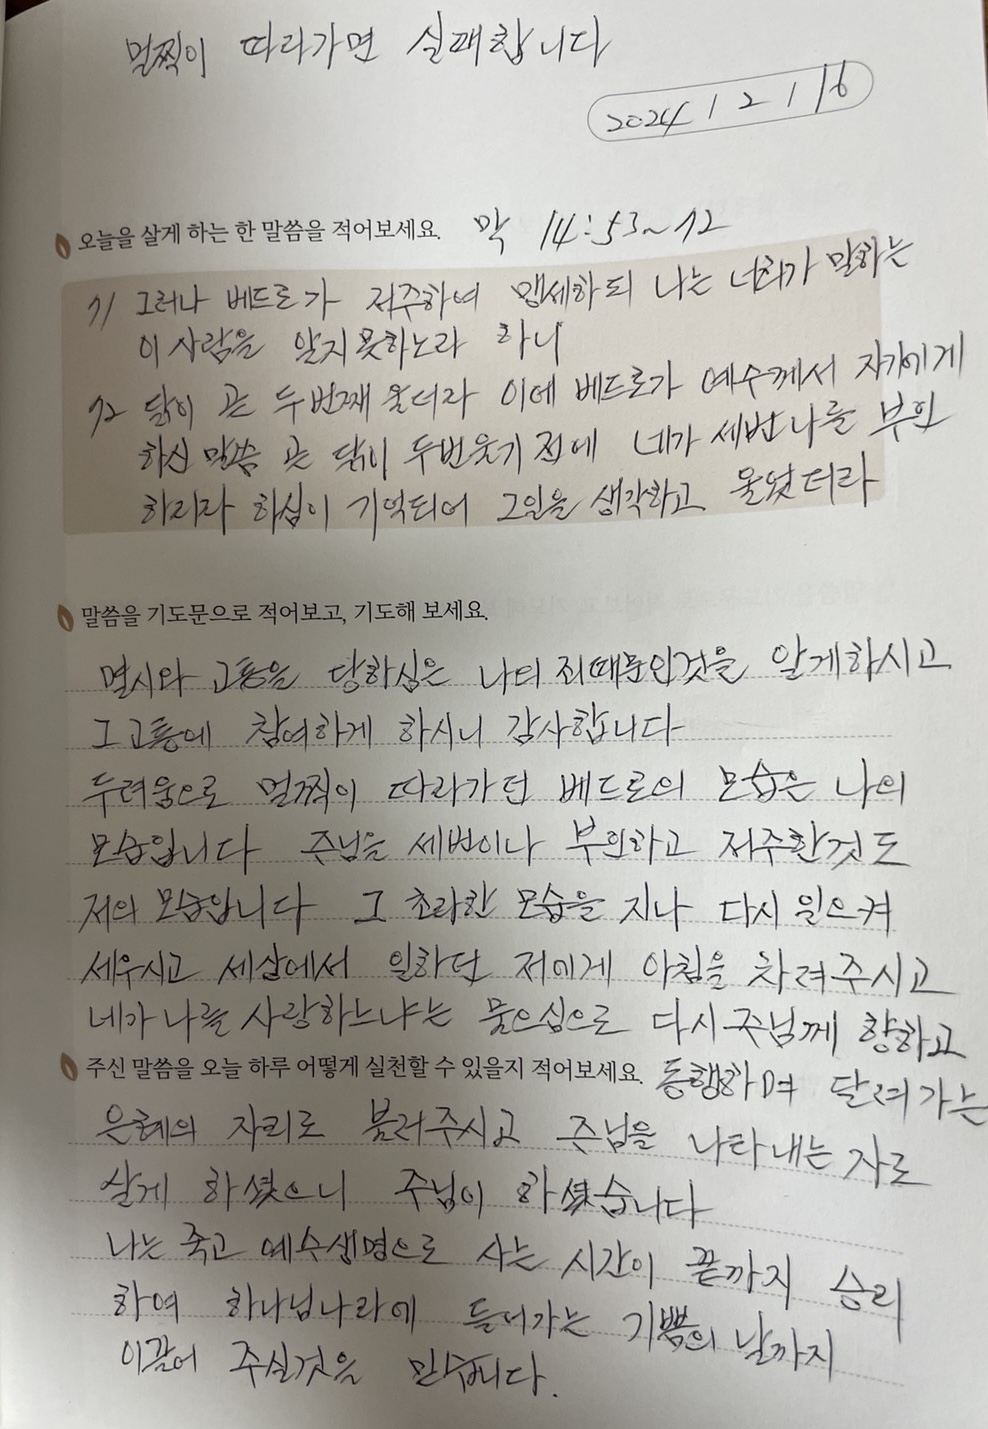 멀찍이 따라가면 실패합니다
2024 / 2 / 16
오늘을 살게 하는 한 말씀을 적어보세요. 막 14:53~72
71 그러나 베드로가 저주하며 맹세하되 나는 너희가 말하는
이 사람을 알지 못하노라 하니
72 닭이 곧 두번째 울더라 이에 베드로가 예수께서 자기에게
하신 말씀 곧 닭이 두번 울기 전에 네가 세번 나를 부인
하리라 하심이 기억되어 그일을 생각하고 울었더라
말씀을 기도문으로 적어보고, 기도해 보세요.
멸시와 고통을 당하심은 나의 죄때문인것을 알게하시고
그 고통에 참여하게 하시니 감사합니다
두려움으로 멀찍이 따라가던 베드로의 모습은 나의
모습입니다 주님을 세번이나 부인하고 저주한것도
저의 모습입니다 그 초라한 모습을 지나 다시 일으켜
세우시고 세상에서 일하던 저에게 아침을 차려주시고
네가 나를 사랑하느냐는 물으심으로 다시 주님께 향하고
주신 말씀을 오늘 하루 어떻게 실천할 수 있을지 적어보세요. 동행하며 달려가는
은혜의 자리로 불러주시고 주님을 나타내는 자로
살게 하셨으니 주님이 하셨습니다
나는 죽고 예수생명으로 사는 시간이 끝까지 승리
하여 하나님나라에 들어가는 기쁨의 날까지
이끌어 주실것을 믿습니다.